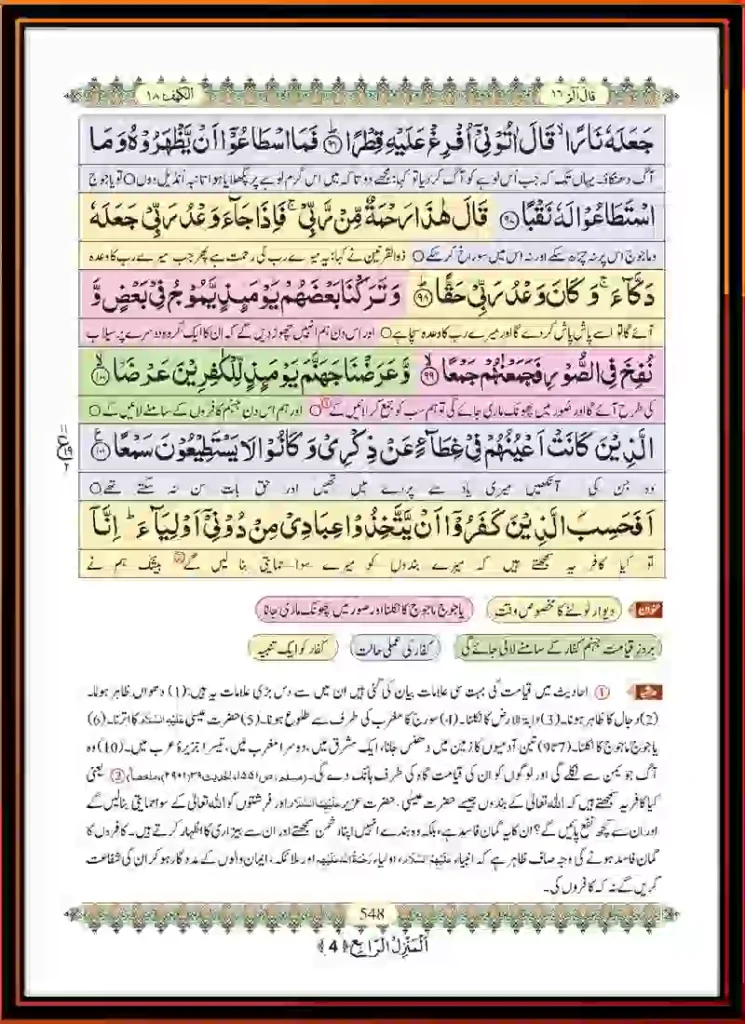 قال الم ١٦
الکهف ١٨
جَعَلَهٗ نَارًا ۙ قَالَ اٰتُوْنِیْۤ اُفْرِغْ عَلَیْهِ قِطْرًا ﴿ؕ۹۶﴾ فَمَا اسْطَاعُوْۤا اَنْ یَّظْهَرُوْهُ وَ مَا
آگ دھنکاؤ۔ یہاں تک کہ جب اُس لوہے کو آگ کر دیا تو کہا: مجھے دو تاکہ میں اس گرم لوہے پر پگھلایا ہوا تانبہ اُنڈیل دوں ○ تو یاجوج
اسْتَطَاعُوْا لَهٗ نَقْبًا ﴿۹۷﴾ قَالَ هٰذَا رَحْمَةٌ مِّنْ رَّبِّیْ ۚ فَاِذَا جَآءَ وَعْدُ رَبِّیْ جَعَلَهٗ
وماجوج اس پر نہ چڑھ سکے اور نہ اس میں سوراخ کر سکے ○ ذوالقرنین نے کہا: یہ میرے رب کی رحمت ہے پھر جب میرے رب کا وعدہ
دَكَّآءَ ۚ وَ كَانَ وَعْدُ رَبِّیْ حَقًّا ﴿ؕ۹۸﴾ وَ تَرَكْنَا بَعْضَهُمْ یَوْمَىٕذٍ یَّمُوْجُ فِیْ بَعْضٍ وَّ
آئے گا تو اسے پاش پاش کر دے گا اور میرے رب کا وعدہ سچا ہے ○ اور اس دن ہم انہیں چھوڑ دیں گے کہ ان کا ایک گروہ دوسرے پر سیلاب
نُفِخَ فِی الصُّوْرِ فَجَمَعْنٰهُمْ جَمْعًا ﴿ۙ۹۹﴾ وَّ عَرَضْنَا جَهَنَّمَ یَوْمَىٕذٍ لِّلْكٰفِرِیْنَ عَرْضَا ﴿ۙ۱۰۰﴾
کی طرح آئے گا اور صُور میں پھونک ماری جائے گی تو ہم سب کو جمع کر لائیں گے ① ○ اور ہم اس دن جہنم کافروں کے سامنے لائیں گے ○
الَّذِیْنَ كَانَتْ اَعْیُنُهُمْ فِیْ غِطَآءٍ عَنْ ذِكْرِیْ وَ كَانُوْا لَا یَسْتَطِیْعُوْنَ سَمْعًا ﴿۱۰۱﴾
١١
ع
١٩
٢
وہ جن کی آنکھیں میری یاد سے پردے میں تھیں اور حق بات سن نہ سکتے تھے ○
اَفَحَسِبَ الَّذِیْنَ كَفَرُوْۤا اَنْ یَّتَّخِذُوْا عِبَادِیْ مِنْ دُوْنِیْۤ اَوْلِیَآءَ ؕ اِنَّاۤ
تو کیا کافر یہ سمجھتے ہیں کہ میرے بندوں کو میرے سوا حمایتی بنا لیں گے ② بیشک ہم نے
عنوان دیوار ٹوٹنے کا مخصوص وقت یاجوج ماجوج کا نکلنا اور صور میں پھونک ماری جانا
بروزِ قیامت جہنم کفار کے سامنے لائی جائے گی کفار کی عملی حالت کفار کو ایک تنبیہ
حاشیہ ① احادیث میں قیامت کی بہت سی علامات بیان کی گئی ہیں ان میں سے دس بڑی علامات یہ ہیں: (1) دھواں ظاہر ہونا۔
(2) دجال کا ظاہر ہونا۔ (3) دابۃ الارض کا نکلنا۔ (4) سورج کا مغرب کی طرف سے طلوع ہونا۔ (5) حضرت عیسیٰ عَلَیْهِ السَّلَام کا اترنا۔ (6)
یاجوج ماجوج کا نکلنا۔ (7 تا 9) تین آدمیوں کا زمین میں دھنس جانا، ایک مشرق میں، دوسرا مغرب میں، تیسرا جزیرۂ عرب میں۔ (10) وہ
آگ جو یمن سے نکلے گی اور لوگوں کو ان کی قیامت گاہ کی طرف ہانک دے گی۔ (مسلم، ص ١٥٥١، الحدیث: ٣٩(٢٩٠١)، ملخصاً) ② یعنی
کیا کافر یہ سمجھتے ہیں کہ اللہ تعالیٰ کے بندوں جیسے حضرت عیسیٰ، حضرت عزیر عَلَیْهِمَا السَّلَام اور فرشتوں کو اللہ تعالیٰ کے سوا حمایتی بنا لیں گے
اور ان سے کچھ نفع پائیں گے؟ ان کا یہ گمان فاسد ہے، بلکہ وہ بندے انہیں اپنا دشمن سمجھتے اور ان سے بیزاری کا اظہار کرتے ہیں۔ کافروں کا
گمان فاسد ہونے کی وجہ صاف ظاہر ہے کہ انبیاء عَلَیْهِمُ السَّلَام، اولیاء رَحْمَةُ اللهِ عَلَیْهِمْ اور ملائکہ، ایمان والوں کے مددگار ہو کر ان کی شفاعت
کریں گے نہ کہ کافروں کی۔
548
اَلْمَنْزِلُ الرَّابِع ﴿4﴾